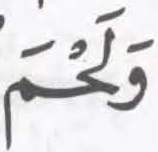 وَلَحْمَ